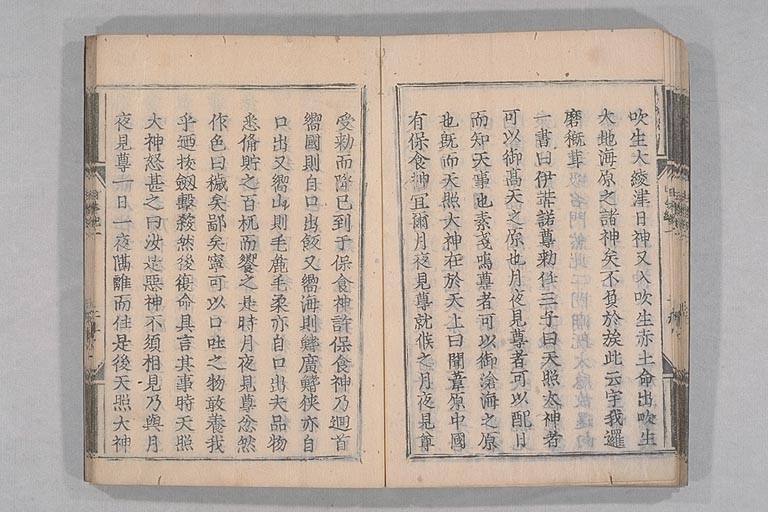 吹生大綾津日神又入吹生赤土命出吹生
大地海原之諸神矣不負於族此云宇我邏
磨穊茸
一書曰伊弉諾尊勅任三子曰天照太神者
可以御髙天之原也月夜見尊者可以配日
而知天事也素戔嗚尊者可以御滄海之原
也既而天照大神在於天上曰聞葦原中國
有保食神宜爾月夜見尊就候之月夜見尊
受勅而降已到于保食神許保食神乃廻首
嚮國則自口出飯又嚮海則鰭廣鰭狹亦自
口出又嚮山則毛麁毛柔亦自口出夫品物
悉備貯之百机而饗之是時月夜見尊忿然
作色曰穢矣鄙矣寧可以口吐之物敢養我
乎廼拔劔擊殺然後復命具言其事時天照
大神怒甚之曰汝是惡神不須相見乃與月
夜見尊一日一夜隔離而住是後天照大神